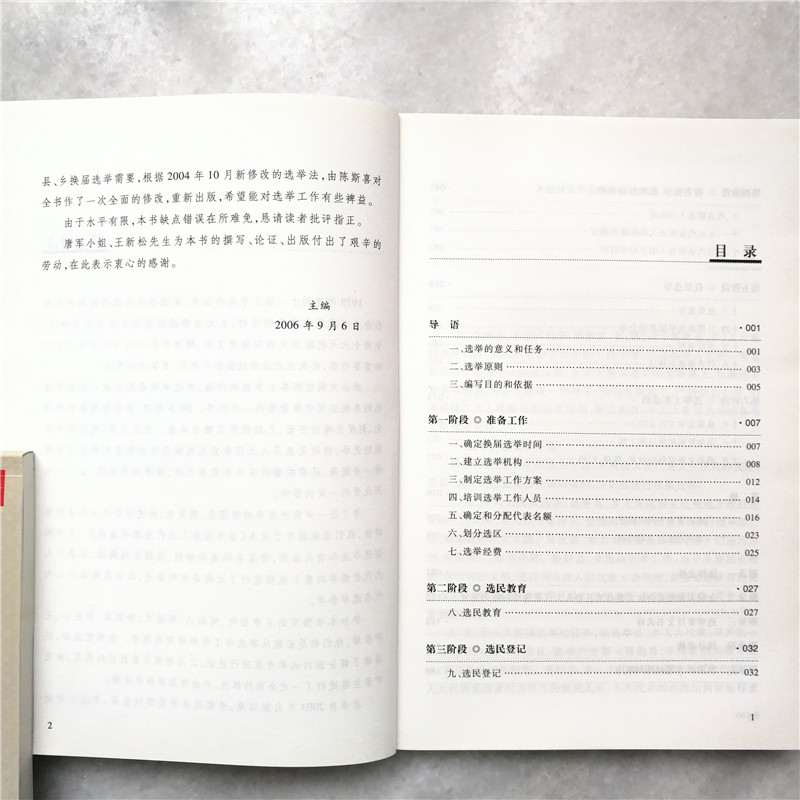 县、乡换届选举需要,根据 2004 年 10 月新修改的选举法,由陈斯喜对
全书作了一次全面的修改,重新出版,希望能对选举工作有些裨益。
由于水平有限,本书缺点错误在所难免,恳请读者批评指正。
唐军小姐、王新松先生为本书的撰写、论证、出版付出了艰辛的
劳动,在此表示衷心的感谢。
主编
2006 年 9 月 6 日
2
目 录
导 语 ·001
一、选举的意义和任务 001
二、选举原则 003
三、编写目的和依据 005
第一阶段 ◎ 准备工作 ·007
一、确定换届选举时间 007
二、建立选举机构 008
三、制定选举工作方案 012
四、培训选举工作人员 014
五、确定和分配代表名额 016
六、划分选区 023
七、选举经费 025
第二阶段 ◎ 选民教育 ·027
八、选民教育 027
第三阶段 ◎ 选民登记 ·032
九、选民登记 032
1